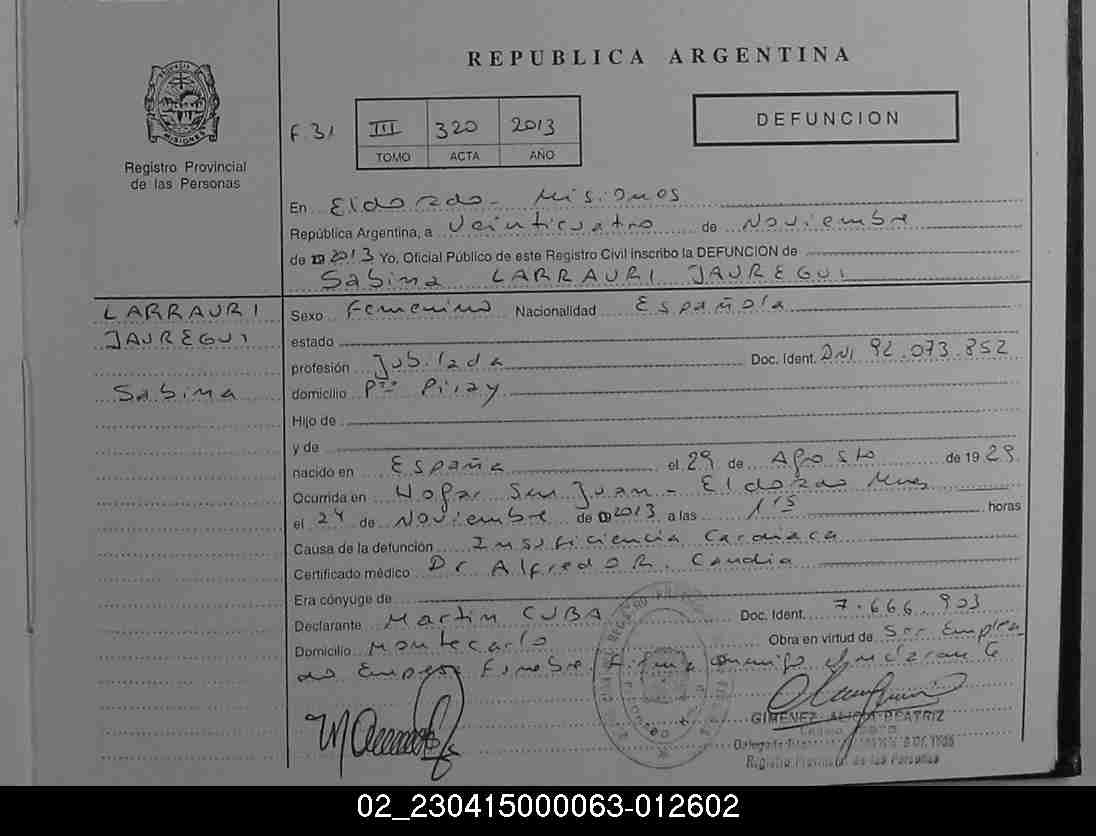 REPUBLICA ARGENTINA
PROVINCIA DE
MISIONES
Registro Provincial
de las Personas
F. 31
III 320 2013
TOMO ACTA AÑO
DEFUNCION
En Eldorado - Misiones
República Argentina, a Veinticuatro de Noviembre
de 2013 Yo, Oficial Público de este Registro Civil inscribo la DEFUNCION de
Sabina LARRAURI JAUREGUI
LARRAURI
JAUREGUI
Sabina
Sexo Femenino Nacionalidad Española
estado
profesión Jubilada Doc. Ident. DNI 92.073.852
domicilio Pto Piray
Hijo de
y de
nacido en España el 29 de Agosto de 1929
Ocurrida en Hogar San Juan - Eldorado Mnes
el 24 de Noviembre de 2013 a las 1:15 horas
Causa de la defunción Insuficiencia Cardiaca
Certificado médico Dr Alfredo R. Candia
Era cónyuge de
Declarante Martin CUBA Doc. Ident. 7.666.903
Domicilio Montecarlo Obra en virtud de Ser Emplea
do Empresa Funebre. Firma conmigo declarante
GIMENEZ ALICIA BEATRIZ
Registro Provincial de las Personas
02_230415000063-012602